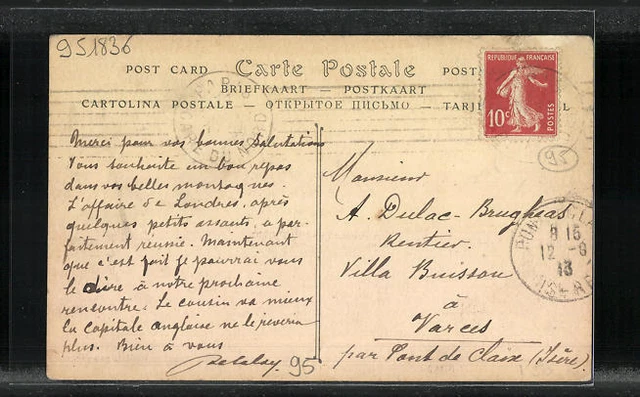 951836
POST CARD Carte Postale POST
BRIEFKAART — POSTKAART
CARTOLINA POSTALE — ОТКРЫТОЕ ПИСЬМО — TARJE L
REPUBLIQUE FRANÇAISE
10c
POSTES
95
Merci pour vos bonnes salutations
Vous souhaite un bon repos
dans vos belles montagnes.
L'affaire de Londres, après
quelques petits assauts, a par-
faitement reussie. Maintenant
que c'est fait je pourrai vous
le dire à notre prochaine
rencontre. Le cousin va mieux
la capitale anglaise ne le reverra
plus. Bien à vous
95
Monsieur
A. Dulac-Brugheas
Rentier
Villa Buisson
à
Varces
par Pont de Claix (Isère).
8 15
12 - 8
13